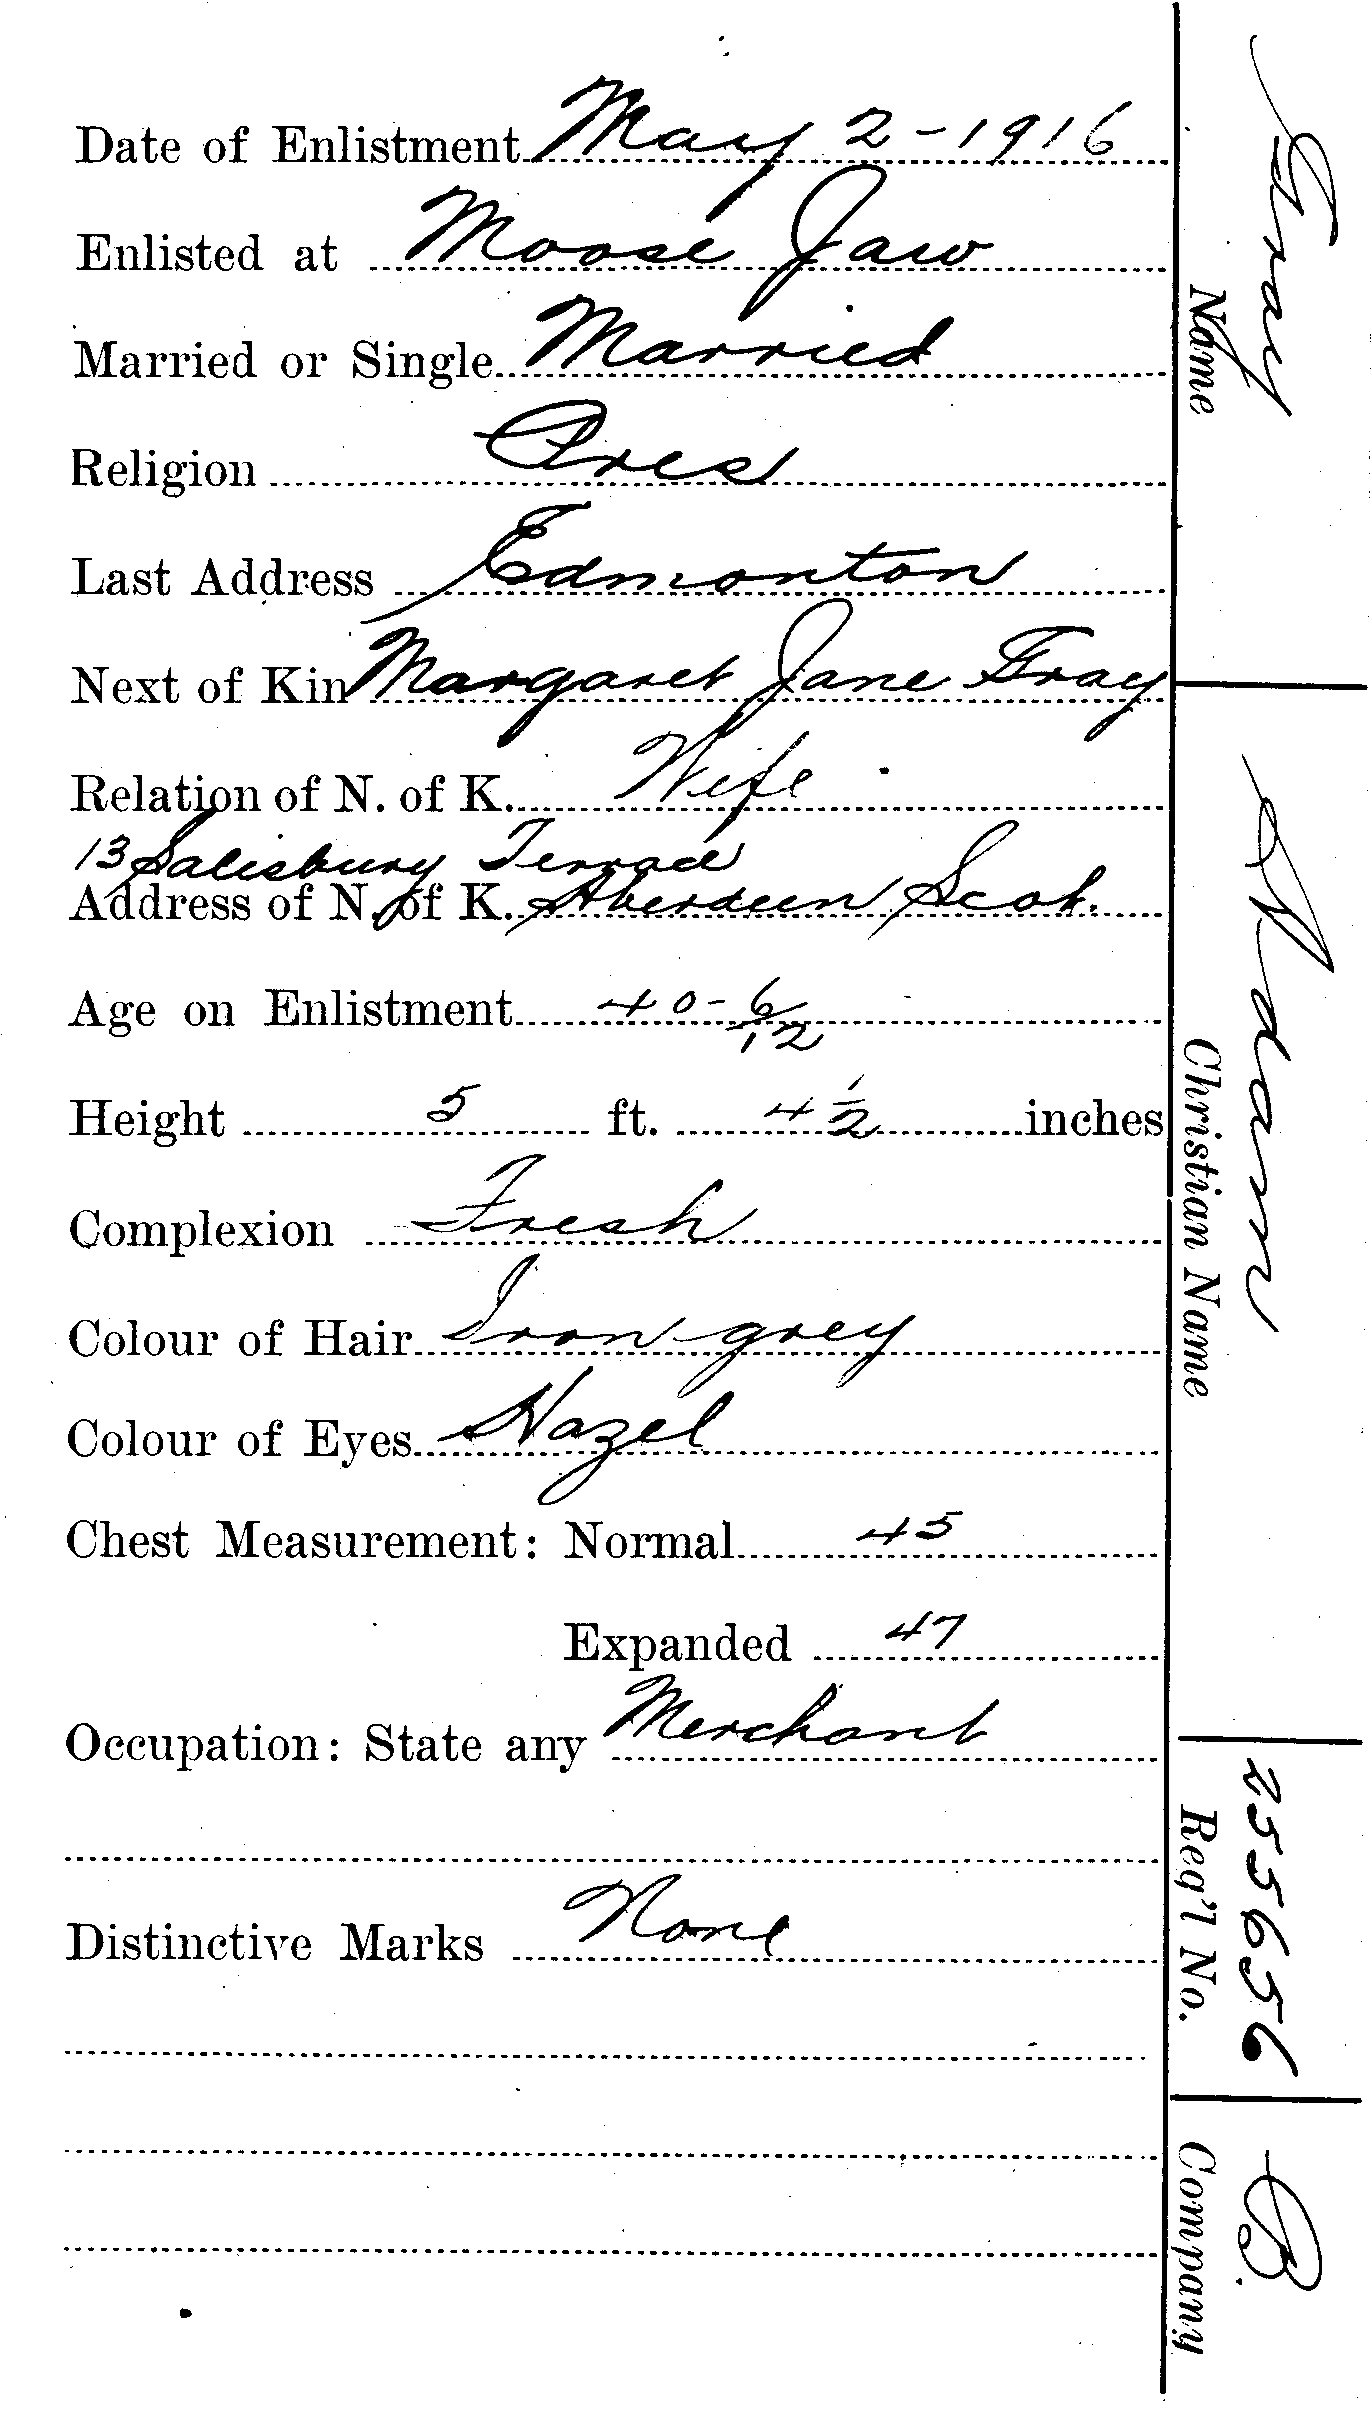 Date of Enlistment May 2-1916
Enlisted at Moose Jaw
Married or Single Married
Religion Pres
Last Address Edmonton
Next of Kin Margaret Jane Fray
Relation of N. of K. Wife
13 Salisbury Terrace
Address of N. of K. Aberdeen Scot.
Age on Enlistment 40-6/12
Height 5 ft. 4 1/2 inches
Complexion Fresh
Colour of Hair Iron grey
Colour of Eyes Hazel
Chest Measurement: Normal 45
Expanded 47
Occupation: State any Merchant
Distinctive Marks None
Fray
Name
Adam
Christian Name
255656
Reg'l No.
B.
Company